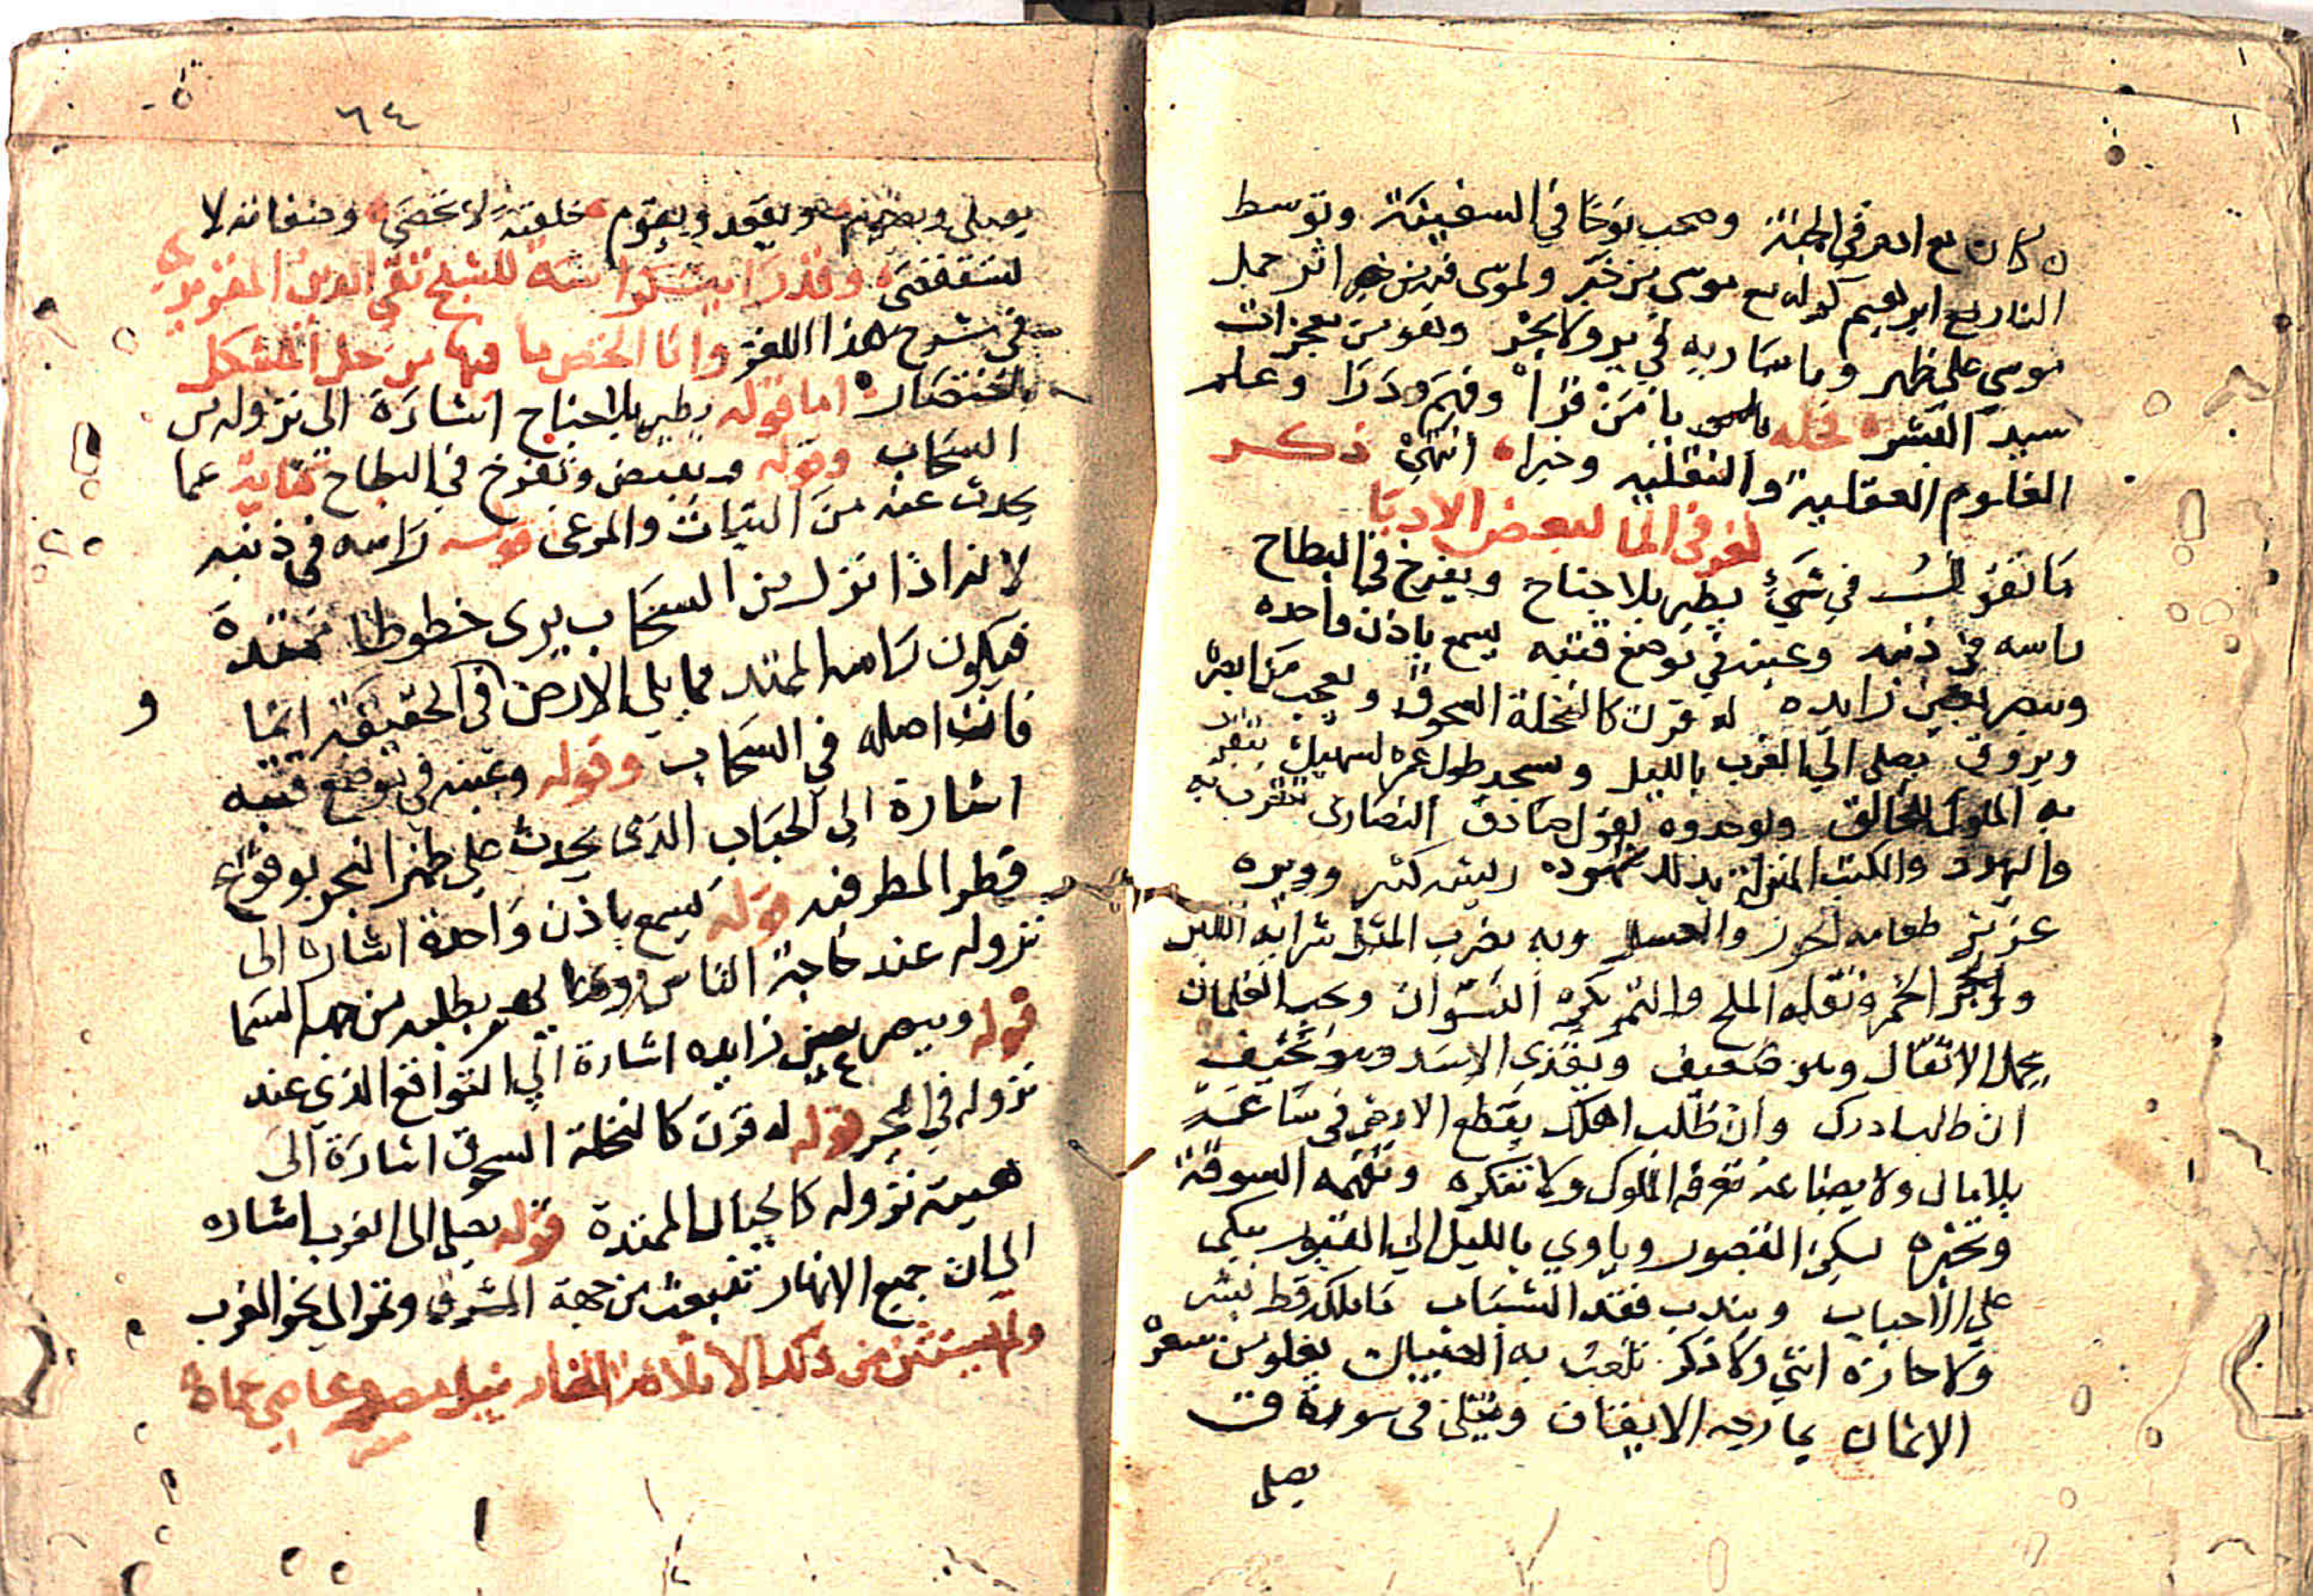 كان مع ادم في الجنة وصحب نوحا في السفينة وتوسط
النار مع ابراهيم كم له مع موسى من خبر ولموسى فيه من اثر حمل
موسى على ظهر وما سار به في بر ولا بحر وهو من معجزات
سيد البشر فحله يا من قرا وفهم ودرا وعلم
العلوم العقلية والنقلية وخبرا انتهى ذكر
لغز في الما لبعض الادبا
ما لغز في شي يطير بلا جناح ويفرخ في البطاح
راسه في ذنبه وعينه في موضع قتبه يسمع باذن واحده
ويبصر بعين زايده له قرن كالنخلة السحوق ويعجب من ابصره
ويروق يصلي الى الغرب بالليل ويسجد طول عمره لسهيل يتقرب
به الملوك للخالق ويوحدوه بقول صادق النصارى تتقرب به
واليهود والكتب المنزلة بذلك شهوده ريشه كثير ووبره
عزيز طعامه الجوز والعسل وبه يضرب المثل شرابه اللبن
والخمر ونقله الملح والتمر يكره النسوان ويحب الغلمان
يحمل الاثقال وهو ضعيف ويغذي الاسد وهو نحيف
ان طلب ادرك وان طلب اهلك يقطع الارض في ساعة
بلا مال ولا بضاعة تعرفه الملوك ولا تنكره وتفهمه السوقة
وتخبره يسكن القصور وياوي بالليل الى القبور يبكي
على الاحباب ويندب فقد الشباب ما ملكه قط بشر
ولا حازه انثى ولا ذكر تلعب به الصبيان يغلو من سعره
الاثمان وتتلى في سورة ق
يصلي
٦٤
يصلي ويصوم ويقعد ويقوم خلقته لا تحصى وصفاته لا
تستقصى وقد رايت كراسة للشيخ تقي الدين المقريزي
في شرح هذا اللغز وانا الخص ما فيها من حل المشكل
باختصار اما قوله يطير بلا جناح اشارة الى نزوله من
السحاب وقوله ويبيض ويفرخ في البطاح كناية عما
يحدث عنه من النبات والمرعى قوله راسه في ذنبه
لانه اذا نزل من السحاب يرى خطوطا ممتدة
فيكون راسه الممتد مما يلي الارض في الحقيقة انما
و
فانت اصله في السحاب وقوله وعينه في موضع قتبه
اشارة الى الحباب الذي يحدث على ظهر البحر بوقوع
قطر المطر فيه قوله يسمع باذن واحدة اشارة الى
نزوله عند حاجة الناس يطلبه من جهة السما
قوله ويبصر بعين زايده اشارة الى التواقع الذي عند
نزوله في البحر قوله له قرن كالنخلة السحوق اشارة الى
هيئة نزوله كالجبال الممتدة قوله يصلي الى الغرب اشاره
الى ان جميع الانهار تنبعث من جهة المشرق وتمر الى نحو المغرب
ولم يستثن من ذلك الا ثلاثة انهار نيل مصر وعاصي حماة